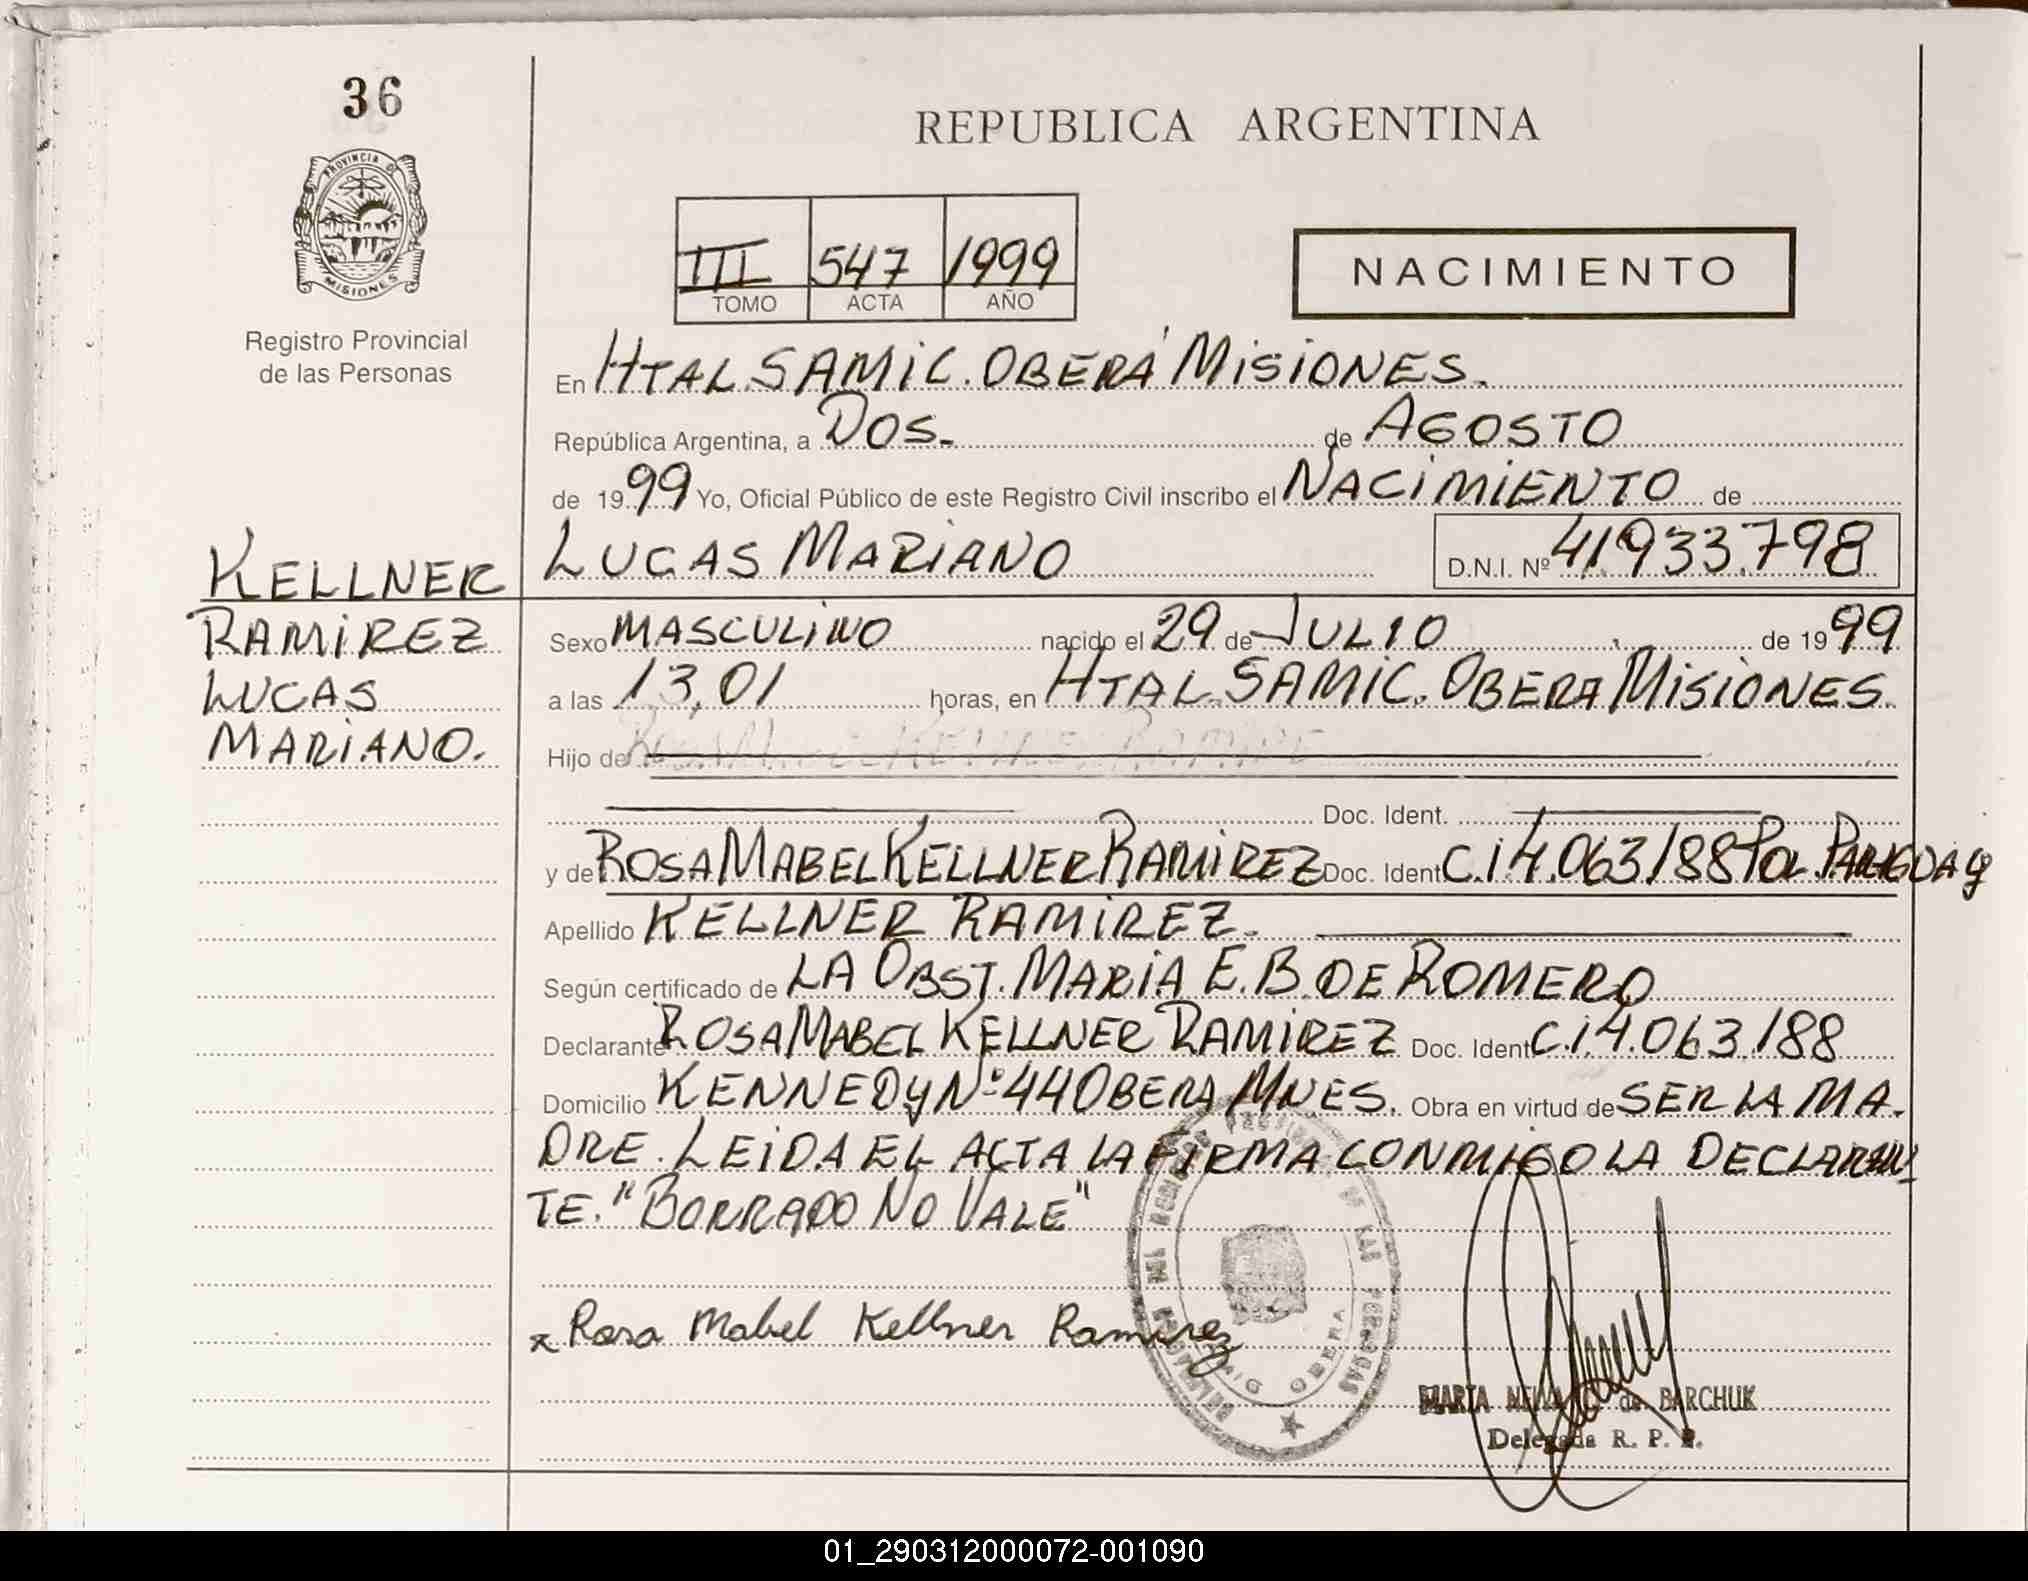 36
REPUBLICA ARGENTINA
PROVINCIA DE
MISIONES
III 547 1999
TOMO ACTA AÑO
NACIMIENTO
Registro Provincial
de las Personas
En HTAL SAMIC. OBERÁ MISIONES.
República Argentina, a DOS. de AGOSTO
de 1999 Yo, Oficial Público de este Registro Civil inscribo el NACIMIENTO de
KELLNER
RAMIREZ
LUCAS
MARIANO.
LUCAS MARIANO D.N.I. Nº 41.933.798
Sexo MASCULINO nacido el 29 de JULIO de 1999
a las 13,01 horas, en HTAL. SAMIC. OBERA MISIONES.
Hijo de
Doc. Ident.
y de ROSA MABEL KELLNER RAMIREZ Doc. Ident C.I 4.063.188 Pol. PARAGUAY
Apellido KELLNER RAMIREZ.
Según certificado de LA OBST. MARIA E. B. DE ROMERO
Declarante ROSA MABEL KELLNER RAMIREZ Doc. Ident C.I 4.063.188
Domicilio KENNEDY Nº 44 OBERA MNES. Obra en virtud de SER LA MA-
DRE. LEIDA EL ACTA LA FIRMA CONMIGO LA DECLARAN-
TE. "BORRADO NO VALE"
x Rosa Mabel Kellner Ramirez
DE LAS PERSONAS
OBERA
MARIA de BARCHUK
Delegada R. P. P.
01_290312000072-001090